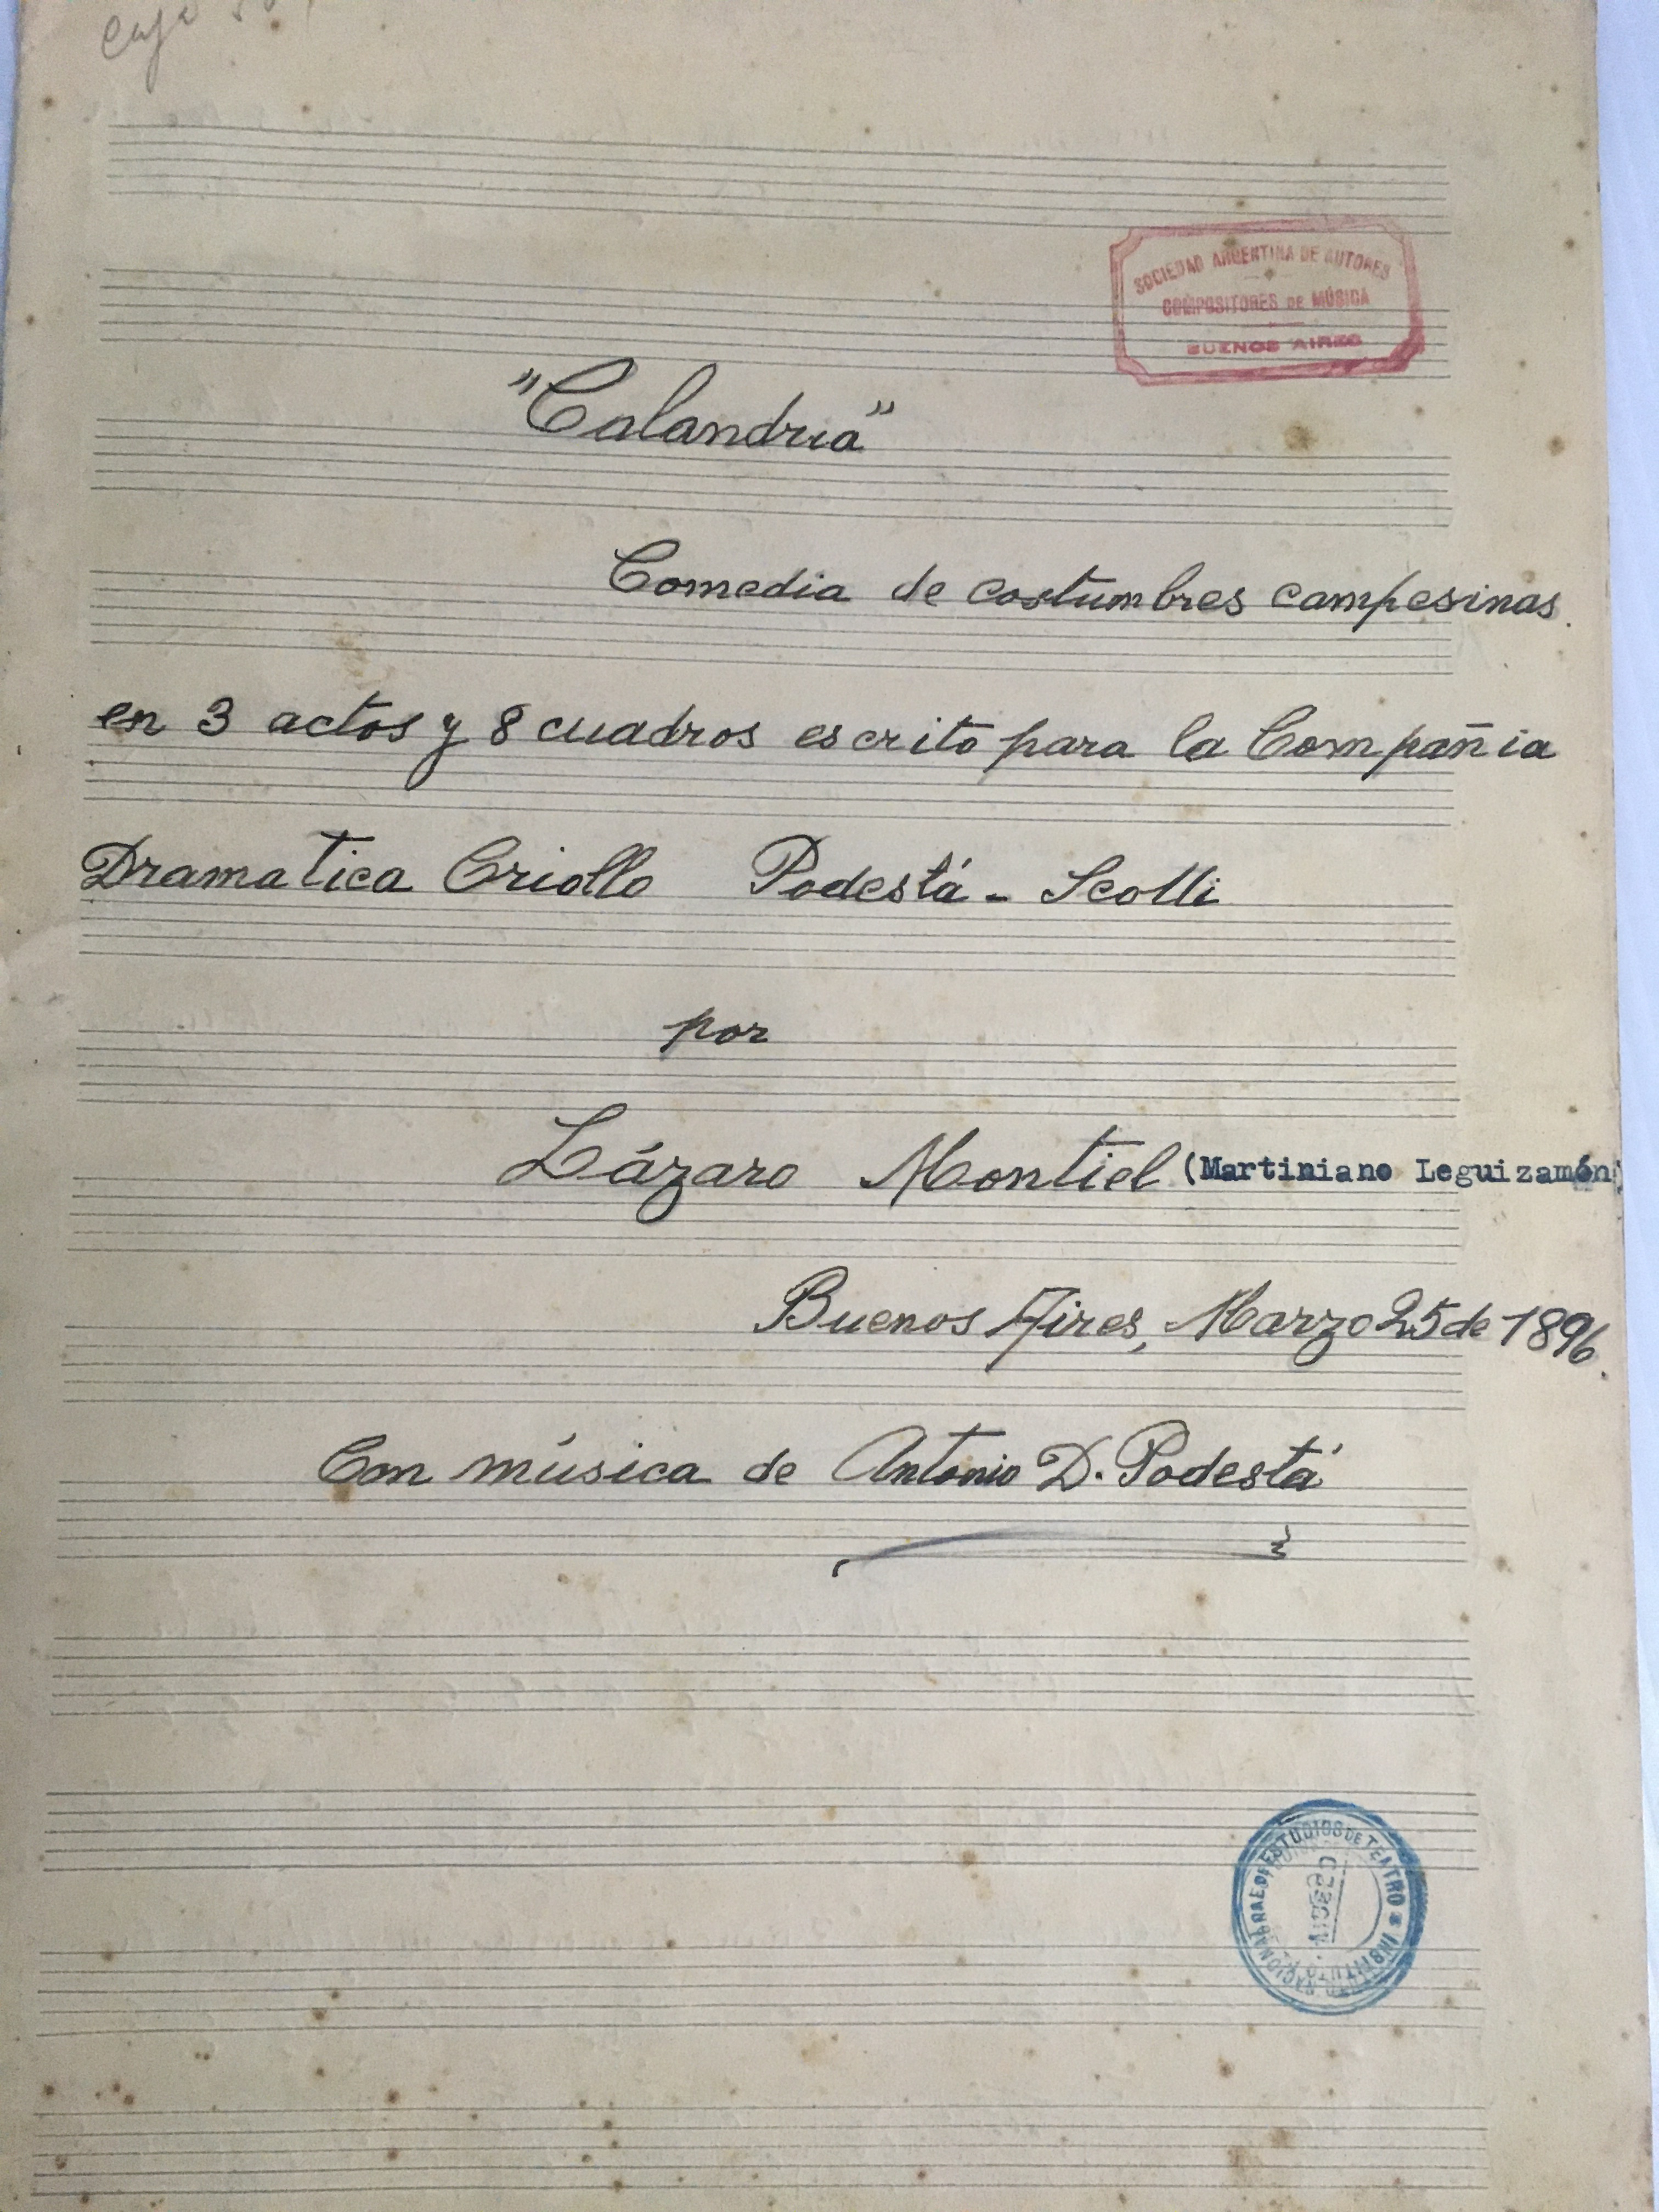 SOCIEDAD ARGENTINA DE AUTORES
COMPOSITORES DE MÚSICA
BUENOS AIRES
"Calandria"
Comedia de costumbres campesinas.
en 3 actos y 8 cuadros escrito para la Compañia
Dramatica Criollo Podestá - Scotti
por
Lázaro Montiel (Martiniano Leguizamón)
Buenos Aires, Marzo 25 de 1896.
Con música de Antonio D. Podestá
INSTITUTO NACIONAL DE ESTUDIOS DE TEATRO